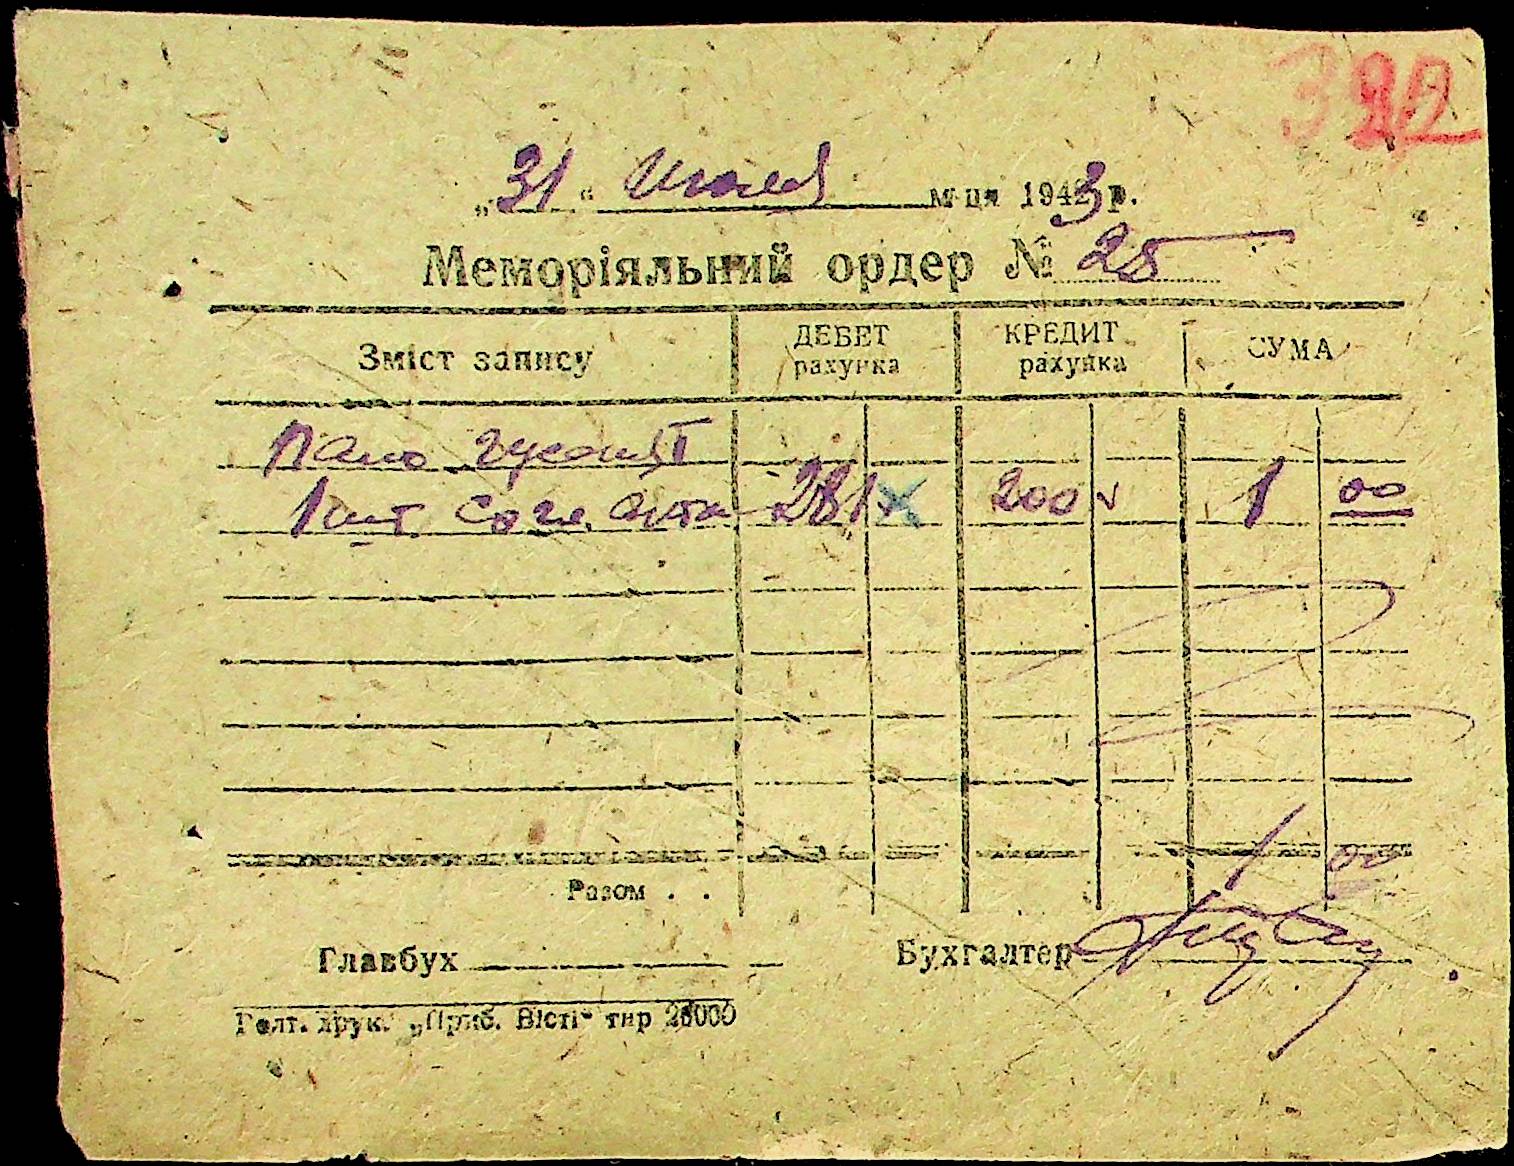 „31“ Июля м-ця 1943 р.
Меморіяльний ордер № 25
Зміст запису ДЕБЕТ рахунка КРЕДИТ рахунка СУМА
Пало гусят
1 шт. согл. акта 281 200 1 00
1 00
Разом . .
Главбух Бухгалтер
Голт. друк. „Приб. Вісті“ тир 25000